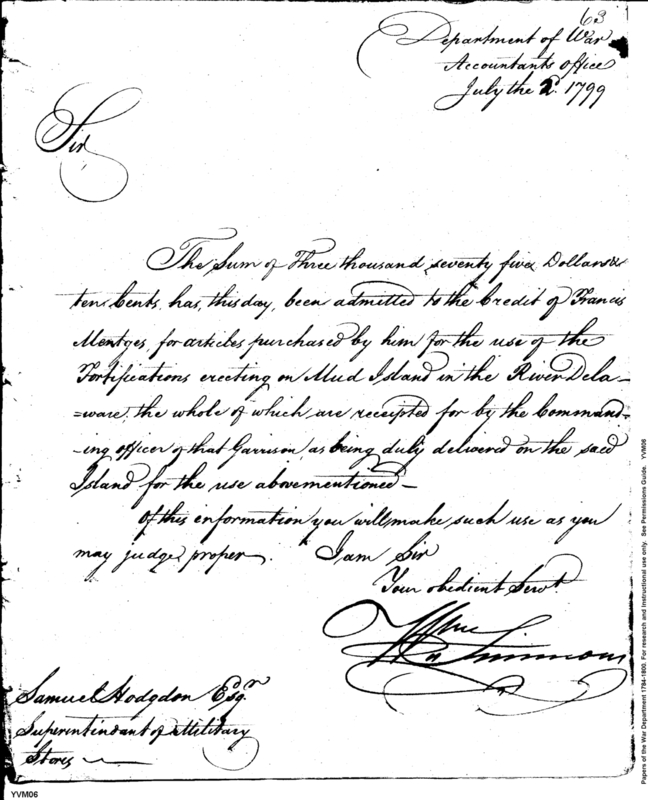 63
Department of War
Accountants office
July the 2d. 1799
Sir
The Sum of Three thousand seventy five Dollars &
ten Cents has, this day, been admitted to the Credit of Francis
Mentges, for articles purchased by him for the use of the
Fortifications erecting on Mud Island in the River Dela-
=ware, the whole of which are receipted for by the Command-
-ing officer of that Garrison, as being duly delivered on the said
Island for the use abovementioned-
Of this information you will make such use as you
may judge proper. I am Sir
Your obedient Servt.
Wm Simmons
Samuel Hodgdon Esqr
Superintendant of Military
Stores
YVM06
Papers of the War Department 1784-1800. For research and Instructional use only. See Permissions Guide. YVM06